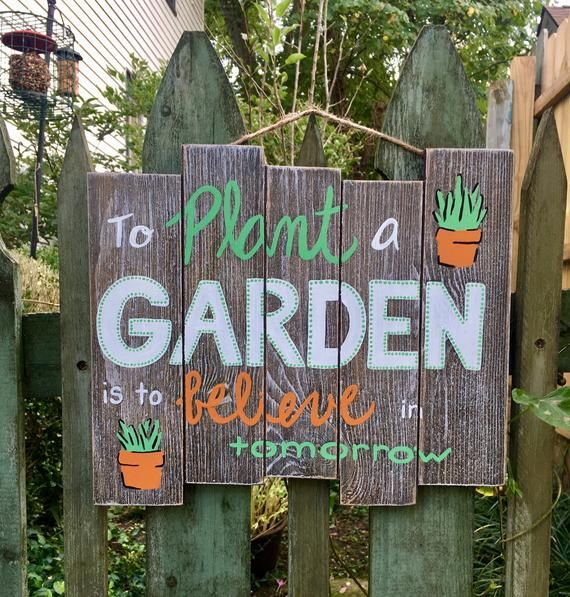 To Plant a
GARDEN
is to believe in
tomorrow